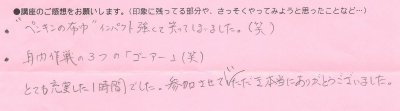 ●講座のご感想をお願いします。(印象に残ってる部分や、さっそくやってみようと思ったことなど…)
・"ペンキンの布巾"インパクト強くて笑ってしまいました。(笑)
・身内作戦の3つの「ゴーアー」(笑)
とても充実した1時間でした。参加させていただき本当にありがとうございました。